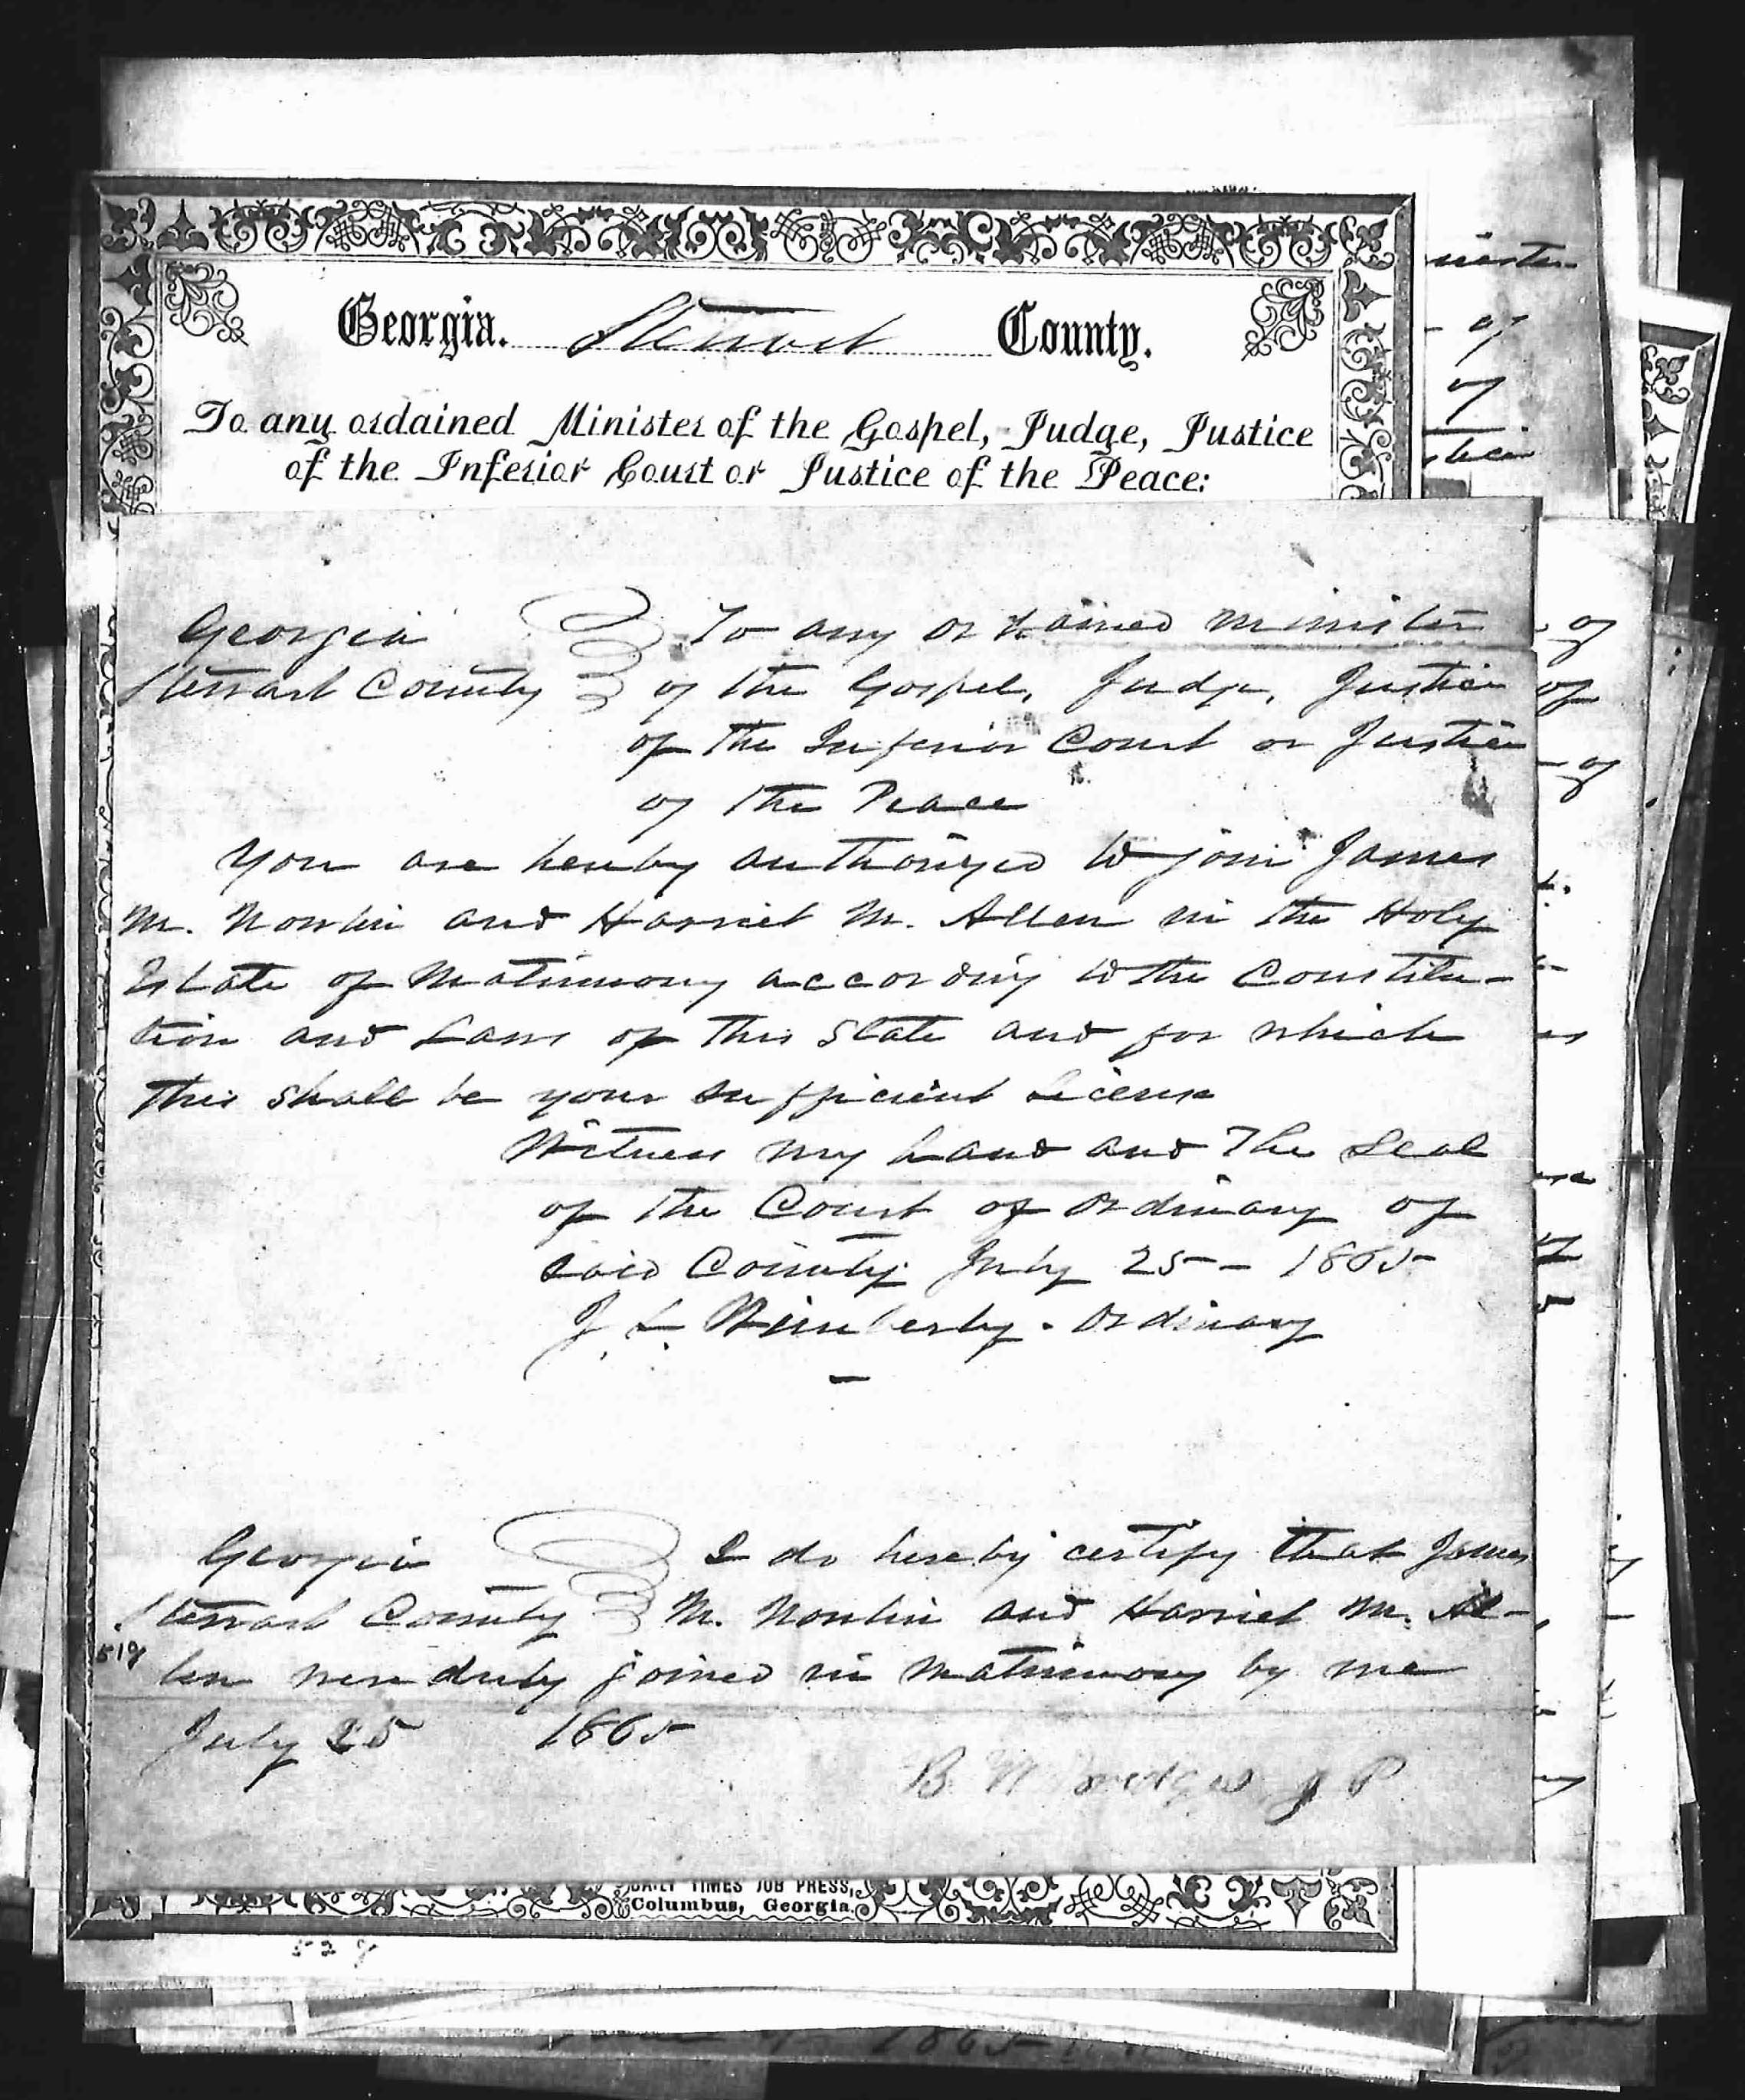 Georgia. Stewart County.
To any ordained Minister of the Gospel, Judge, Justice
of the Inferior Court or Justice of the Peace:
Georgia To any ordained minister
Stewart County of the Gospel, Judge, Justice
of the Inferior Court or Justice
of the Peace
You are hereby authorized to join James
M. Nowlin and Harriet M. Allen in the Holy
Estate of Matrimony according to the Constitu-
tion and Laws of this State and for which
this shall be your sufficient License
Witness my hand and the Seal
of the Court of Ordinary of
said County July 25 - 1865
J. L. Wimberly. Ordinary
Georgia I do hereby certify that James
Stewart County M. Nowlin and Harriet M. Al-
len were duly joined in matrimony by me
519
July 25 1865
B. J P
DAILY TIMES JOB PRESS,
Columbus, Georgia.
528
1865